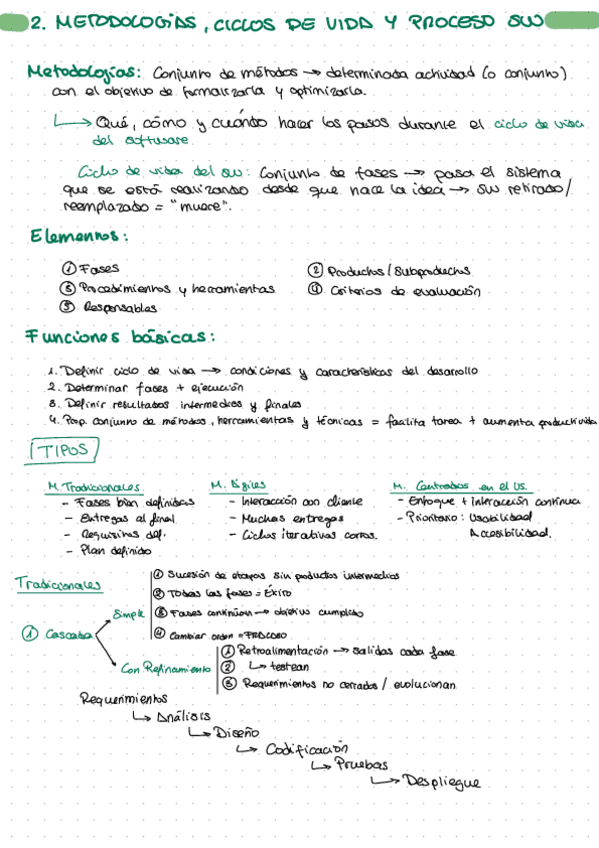 2. METODOLOGÍAS, CICLOS DE VIDA Y PROCESO SW
Metodologías: Conjunto de métodos → determinada actividad (o conjunto)
con el objetivo de formalizarla y optimizarla.
↳ Qué, cómo y cuándo hacer los pasos durante el ciclo de vida
del software
Ciclo de vida del sw: Conjunto de fases → pasa el sistema
que se está realizando desde que nace la idea → sw retirado/
reemplazado = "muere".
Elementos:
① Fases ② Productos/Subproductos
③ Procedimientos y herramientas ④ Criterios de evaluación
⑤ Responsables
Funciones básicas:
1. Definir ciclo de vida → condiciones y características del desarrollo
2. Determinar fases + ejecución
3. Definir resultados intermedios y finales
4. Prop. conjunto de métodos, herramientas y técnicas = facilita tarea + aumenta productividad
TIPOS
M. Tradicionales M. Ágiles M. Centrados en el US.
- Fases bien definidas - Interacción con cliente - Enfoque + interacción continua
- Entregas al final - Muchas entregas - Prioritario: Usabilidad
- Requisitos def. - Ciclos iterativos cortos. Accesibilidad.
- Plan definido
Tradicionales
① Cascada
Simple
① Sucesión de etapas sin productos intermedios
② Todas las fases = Éxito
③ Fases continúan → objetivo cumplido
④ Cambiar orden = FRACASO
Con Refinamiento
① Retroalimentación → salidas cada fase
② ↳ testean
③ Requerimientos no cerrados / evolucionan
Requerimientos
↳ Análisis
↳ Diseño
↳ Codificación
↳ Pruebas
↳ Despliegue